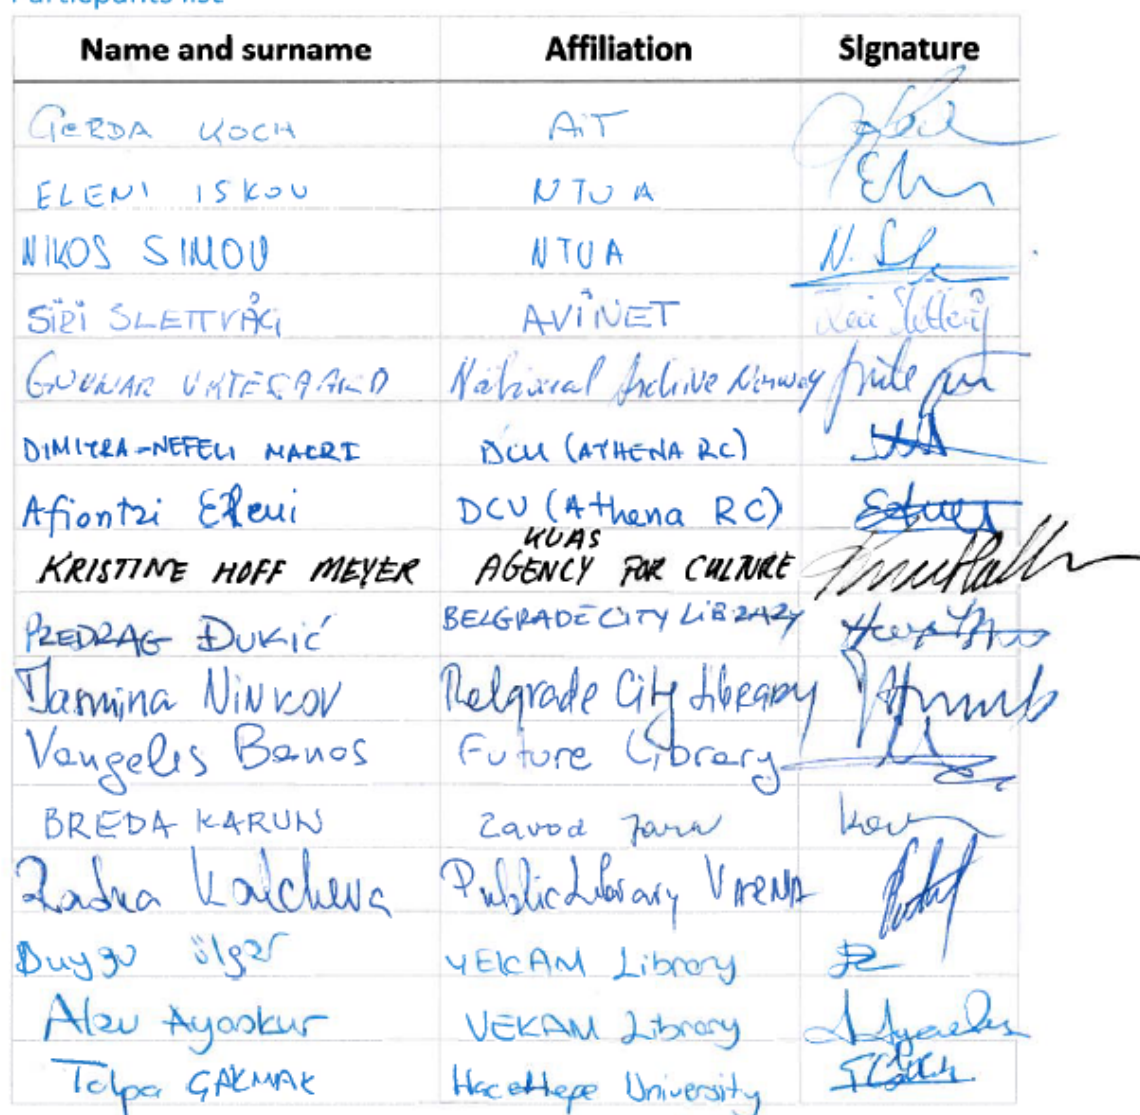 Participants list
Name and surname Affiliation Signature
GERDA KOCH AiT
ELENI ISKOU NTUA
NIKOS SIMOU NTUA N. S
SIRI SLETTVÅG AVINET Siri Slettvåg
GUNNAR URTEGAARD National Archive Norway
DIMITRA-NEFELI MACRI DCU (ATHENA RC)
Afiontzi Eleni DCU (Athena RC)
KUAS
KRISTINE HOFF MEYER AGENCY FOR CULTURE
PREDRAG ĐUKIĆ BELGRADE CITY LIBRARY
Jasmina Ninkov Belgrade City Library
Vangelis Banos Future Library
BREDA KARUN Zavod Jara
Radka Kalcheva Public Library VARNA
Duygu ülger VEKAM Library
Alev Ayaokur VEKAM Library
Tolga ÇAKMAK Hacettepe University